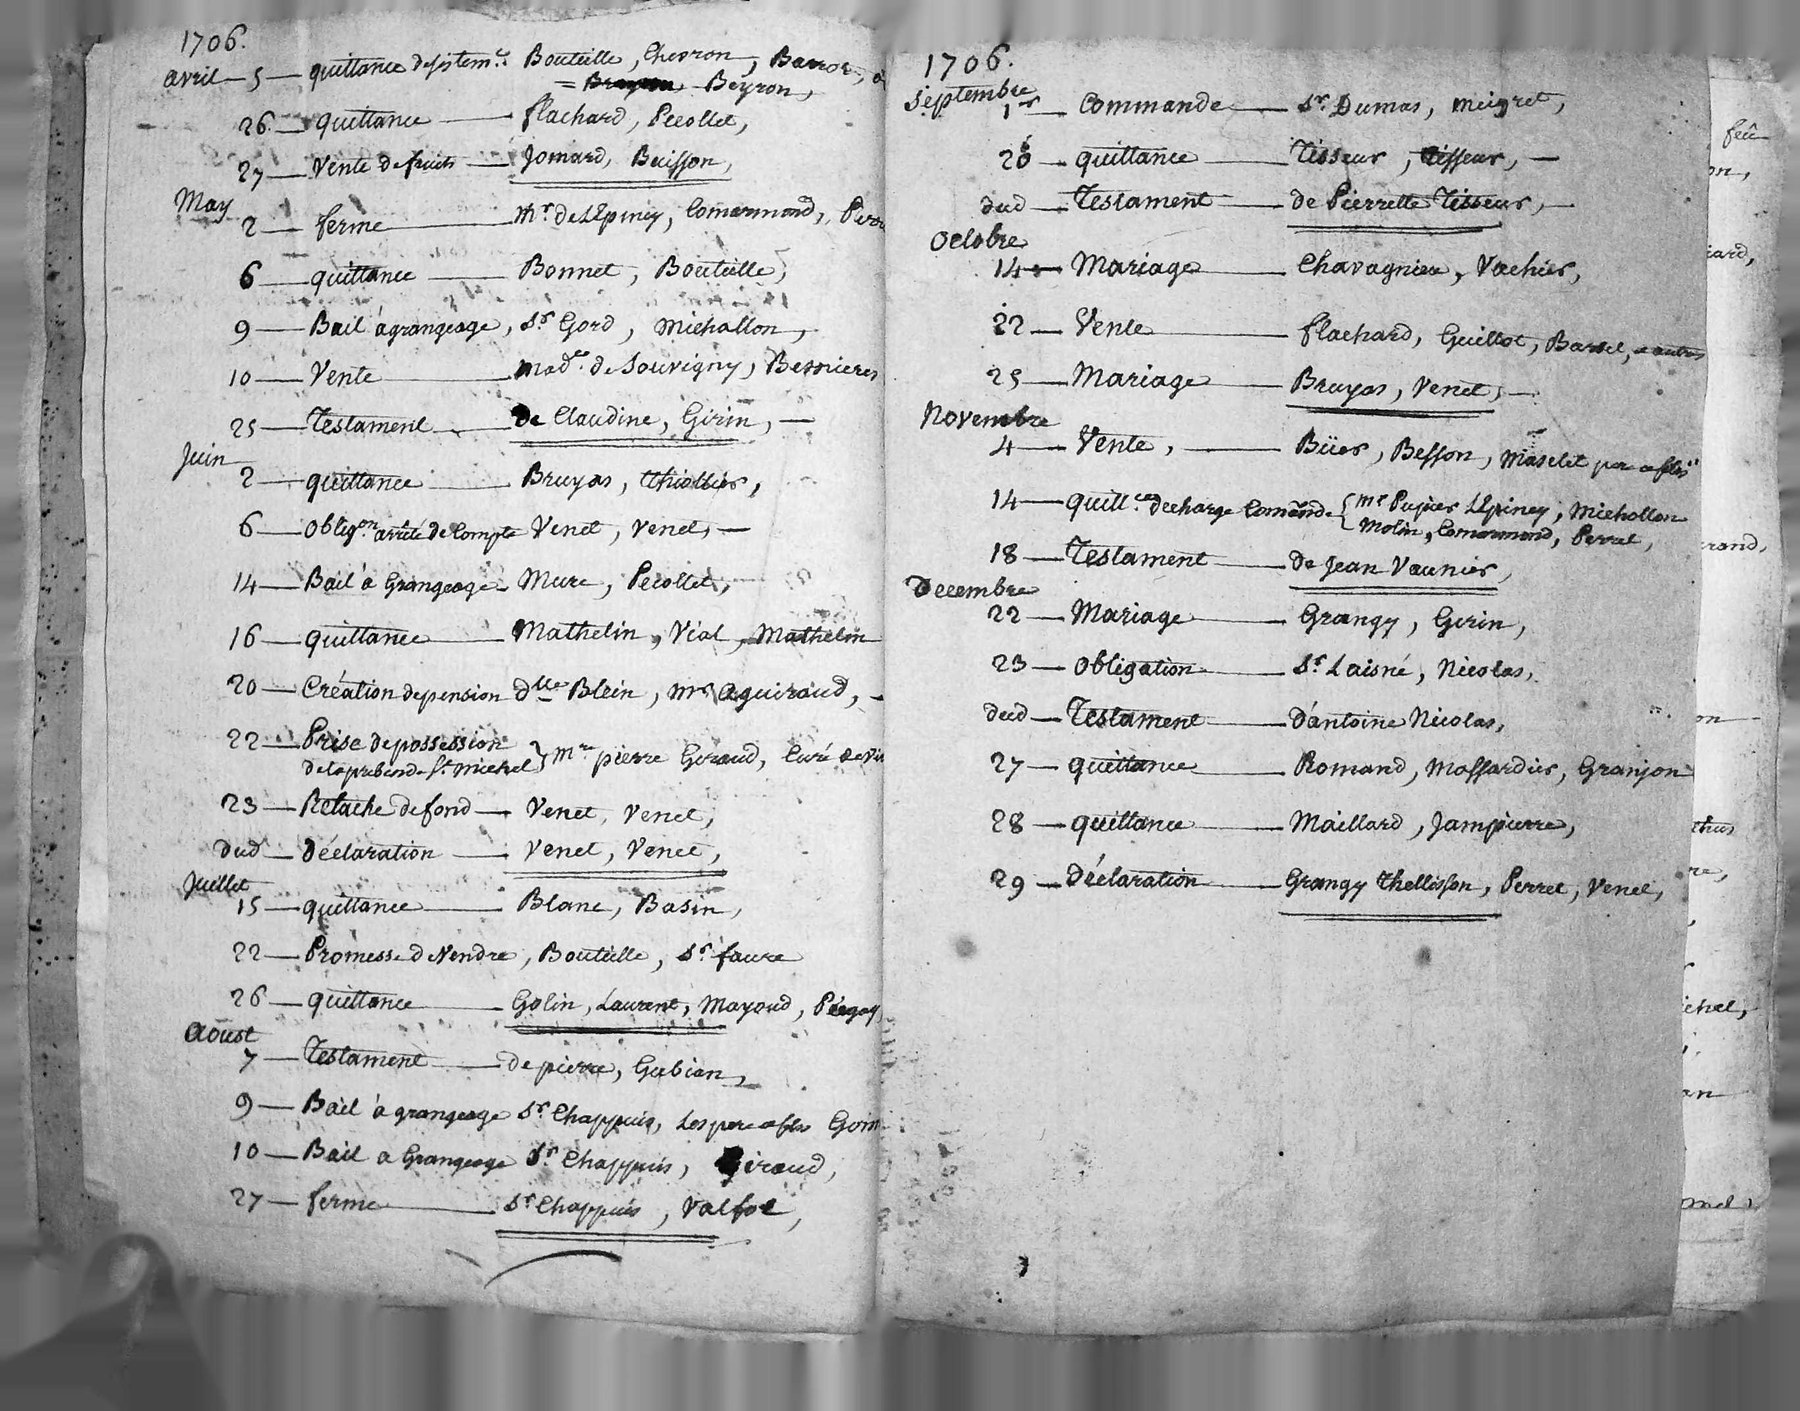 1706.
avril — 5 — quittance desistem.t Bouteille, Chevron, Barron,
= Beyron,
26 — quittance — flachard, Pecollet,
27 — Vente de fruits — Jomard, Buisson,
May
2 — ferme — Mr. de L'Epiney, Comarmond, Perr
6 — quittance — Bonnet, Bouteille,
9 — Bail à grangeage, Sr. Gord, Michallon,
10 — Vente — mad.e de Souvigny, Bernieres
25 — Testament — de Claudine, Girin, —
Juin
2 — quittance — Bruyas, thiollier,
6 — oblig.on arrêté de Compte Venet, Venet, —
14 — Bail à Grangeage — Mure, Pecollet,
16 — quittance — Mathelin, Vial, Mathelin
20 — Création de pension dlle Blein, mr Aguiraud, —
22 — Prise de possession
de la prebende St. Michel } Mre pierre Giraud, Curé de Vi
23 — Relache de fond — Venet, Venet,
dud — Déclaration — Venet, Venet,
Juillet
15 — quittance — Blanc, Basin,
22 — Promesse de Vendre, Bouteille, Sr. faure
26 — quittance — Golin, Laurent, Mayoud, Péegay,
Aoust
7 — Testament — de pierre, Gubian,
9 — Bail à grangeage Sr. Chappuis, Les pere et fils Goin
10 — Bail a Grangeage Sr. Chappuis, Giraud,
27 — ferme — Sr. Chappuis, Valfor,
1706.
Septembre
1er — Commande — Sr. Dumas, meigret,
26 — quittance — Tisseur, Tisseur, —
dud — Testament — de Pierrette Tisseur, —
Octobre
14 — Mariage — Chavagnieu, Vachier,
22 — Vente — flachard, Guillot, Bartel, et autres
25 — Mariage — Bruyas, Venet, —
Novembre
4 — Vente, — Büer, Besson, Maselet pere et fils
14 — quitt.ce decharge Comande { mr Pupier L'Epiney, Michollon
Molin, Comarmond, Perret,
18 — Testament — de Jean Vaunier,
Decembre
22 — Mariage — Grangy, Girin,
23 — obligation — Sr. Laisné, Nicolas,
dud — Testament — d'antoine Nicolas,
27 — quittance — Romand, Massardier, Granjon
28 — quittance — Maillard, Jampierre,
29 — Déclaration — Grangy thellisson, Perret, Venet,